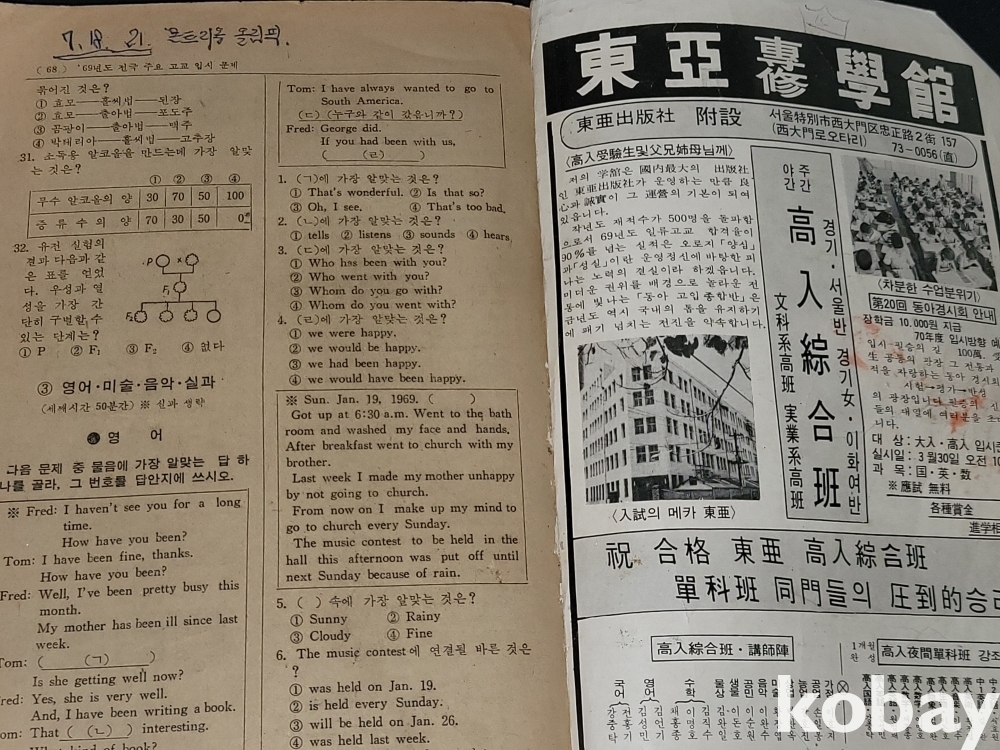 7. 18. 21. 몬트리올 올림픽.
(68) '69년도 전국 주요 고교 입시 문제
묶어진 것은?
① 효모——홑씨법——된장
② 효모——출아법——포도주
③ 곰팡이——출아법——맥주
④ 박테리아——홑씨법——고추장
31. 소독용 알코올을 만드는데 가장 알맞
는 것은?
① ② ③ ④
무수 알코올의 양 30 70 50 100
증류수의 양 70 30 50 0
32. 유전 실험의
결과 다음과 같
은 표를 얻었
다. 우성과 열
성을 가장 간
단히 구별할 수
있는 단계는?
P × F₁ F₂
① P ② F₁ ③ F₂ ④ 없다
③ 영어·미술·음악·실과
(세째시간 50분간) ※ 실과 생략
영 어
다음 문제 중 물음에 가장 알맞는 답 하
나를 골라, 그 번호를 답안지에 쓰시오.
※ Fred: I haven't see you for a long
time.
How have you been?
Tom: I have been fine, thanks.
How have you been?
Fred: Well, I've been pretty busy this
month.
My mother has been ill since last
week.
Tom: ( (ㄱ) )
Is she getting well now?
Fred: Yes, she is very well.
And, I have been writing a book.
Tom: That ( (ㄴ) ) interesting.
What kind of book?
Tom: I have always wanted to go to
South America.
(ㄷ) (누구와 같이 갔을니까?)
Fred: George did.
If you had been with us,
( (ㄹ) )
1. (ㄱ)에 가장 알맞는 것은?
① That's wonderful. ② Is that so?
③ Oh, I see. ④ That's too bad.
2. (ㄴ)에 가장 알맞는 것은?
① tells ② listens ③ sounds ④ hears
3. (ㄷ)에 가장 알맞는 것은?
① Who has been with you?
② Who went with you?
③ Whom do you go with?
④ Whom do you went with?
4. (ㄹ)에 가장 알맞는 것은?
① we were happy.
② we would be happy.
③ we had been happy.
④ we would have been happy.
※ Sun. Jan. 19, 1969. ( )
Got up at 6:30 a.m. Went to the bath
room and washed my face and hands.
After breakfast went to church with my
brother.
Last week I made my mother unhappy
by not going to church.
From now on I make up my mind to
go to church every Sunday.
The music contest to be held in the
hall this afternoon was put off until
next Sunday because of rain.
5. ( ) 속에 가장 알맞는 것은?
① Sunny ② Rainy
③ Cloudy ④ Fine
6. The music contest에 연결될 바른 것은
?
① was held on Jan. 19.
② is held every Sunday.
③ will be held on Jan. 26.
④ was held last week.
東亞 專修 學館
東亜出版社 附設
서울特別市西大門区忠正路2街 157
(西大門로오타리) 73-0056(直)
〈高入受驗生및父兄姉母님께〉
저의 学舘은 國内最大의 出版社
인 東亜出版社가 운영하는 만큼 良
心과 誠實이 그 運営의 기본이 되여
있읍니다.
작년도 재적수가 500명을 돌파함
으로서 69년도 일류고교 합격율이
90%를 넘는 실적은 오로지 「양심」
과「성실」이란 운영정신에 바탕한 피
나는 노력의 결실이라 하겠읍니다.
미더운 권위를 배경으로 놀라운 전
통에 빛나는 「동아 고입 종합반」은
금년도 역시 국내의 톱을 유지하기
에 패기 넘치는 전진을 약속합니다.
〈入試의 메카 東亜〉
주간
야간
高入綜合班
경기·서울반
경기女·이화여반
文科系高班 実業系高班
〈차분한 수업분위기〉
第20回 동아경시회 안내
장학금 10.000원 지급
70年度 입시방향
입시 필승의 길 100萬
적을 자랑하는 동아 경시회
시험→평가→반성
의 광장입니다
니다.
대 상 : 大入·高入
실시일 : 3月30일 오전 10
과 목 : 国·英·数
※ 應試 無料
各種賞金
進学相
祝 合格 東亜 高入綜合班
單科班 同門들의 圧到的
高入綜合班·講師陣
1개월
완성
高入夜間單科班 강
국어
영어
수학
kobay